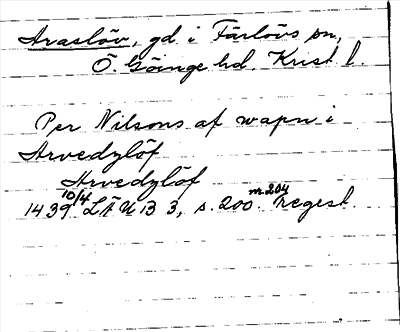 Araslöv, gd. i Färlövs sn,
Ö. Göinge hd. Krist. l.
Per Nilsons af wapn i
Arvedzlöf
Arvedzlöf
1439 10/4 LÄU 13 3, s. 200. m. 204 regest.